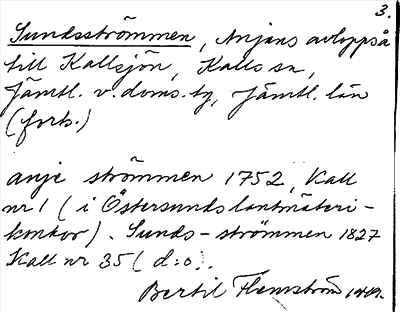 3.
Sundsströmmen, Anjans avloppså
till Kallsjön, Kalls sn,
Jämtl. v. doms. tg, Jämtl. län
(forts.)
anje strömmen 1752, Kall
nr 1 (i Östersunds lantmäteri-
kontor). Sunds-strömmen 1827
Kall nr 35 (d:o).
Bertil Flemström